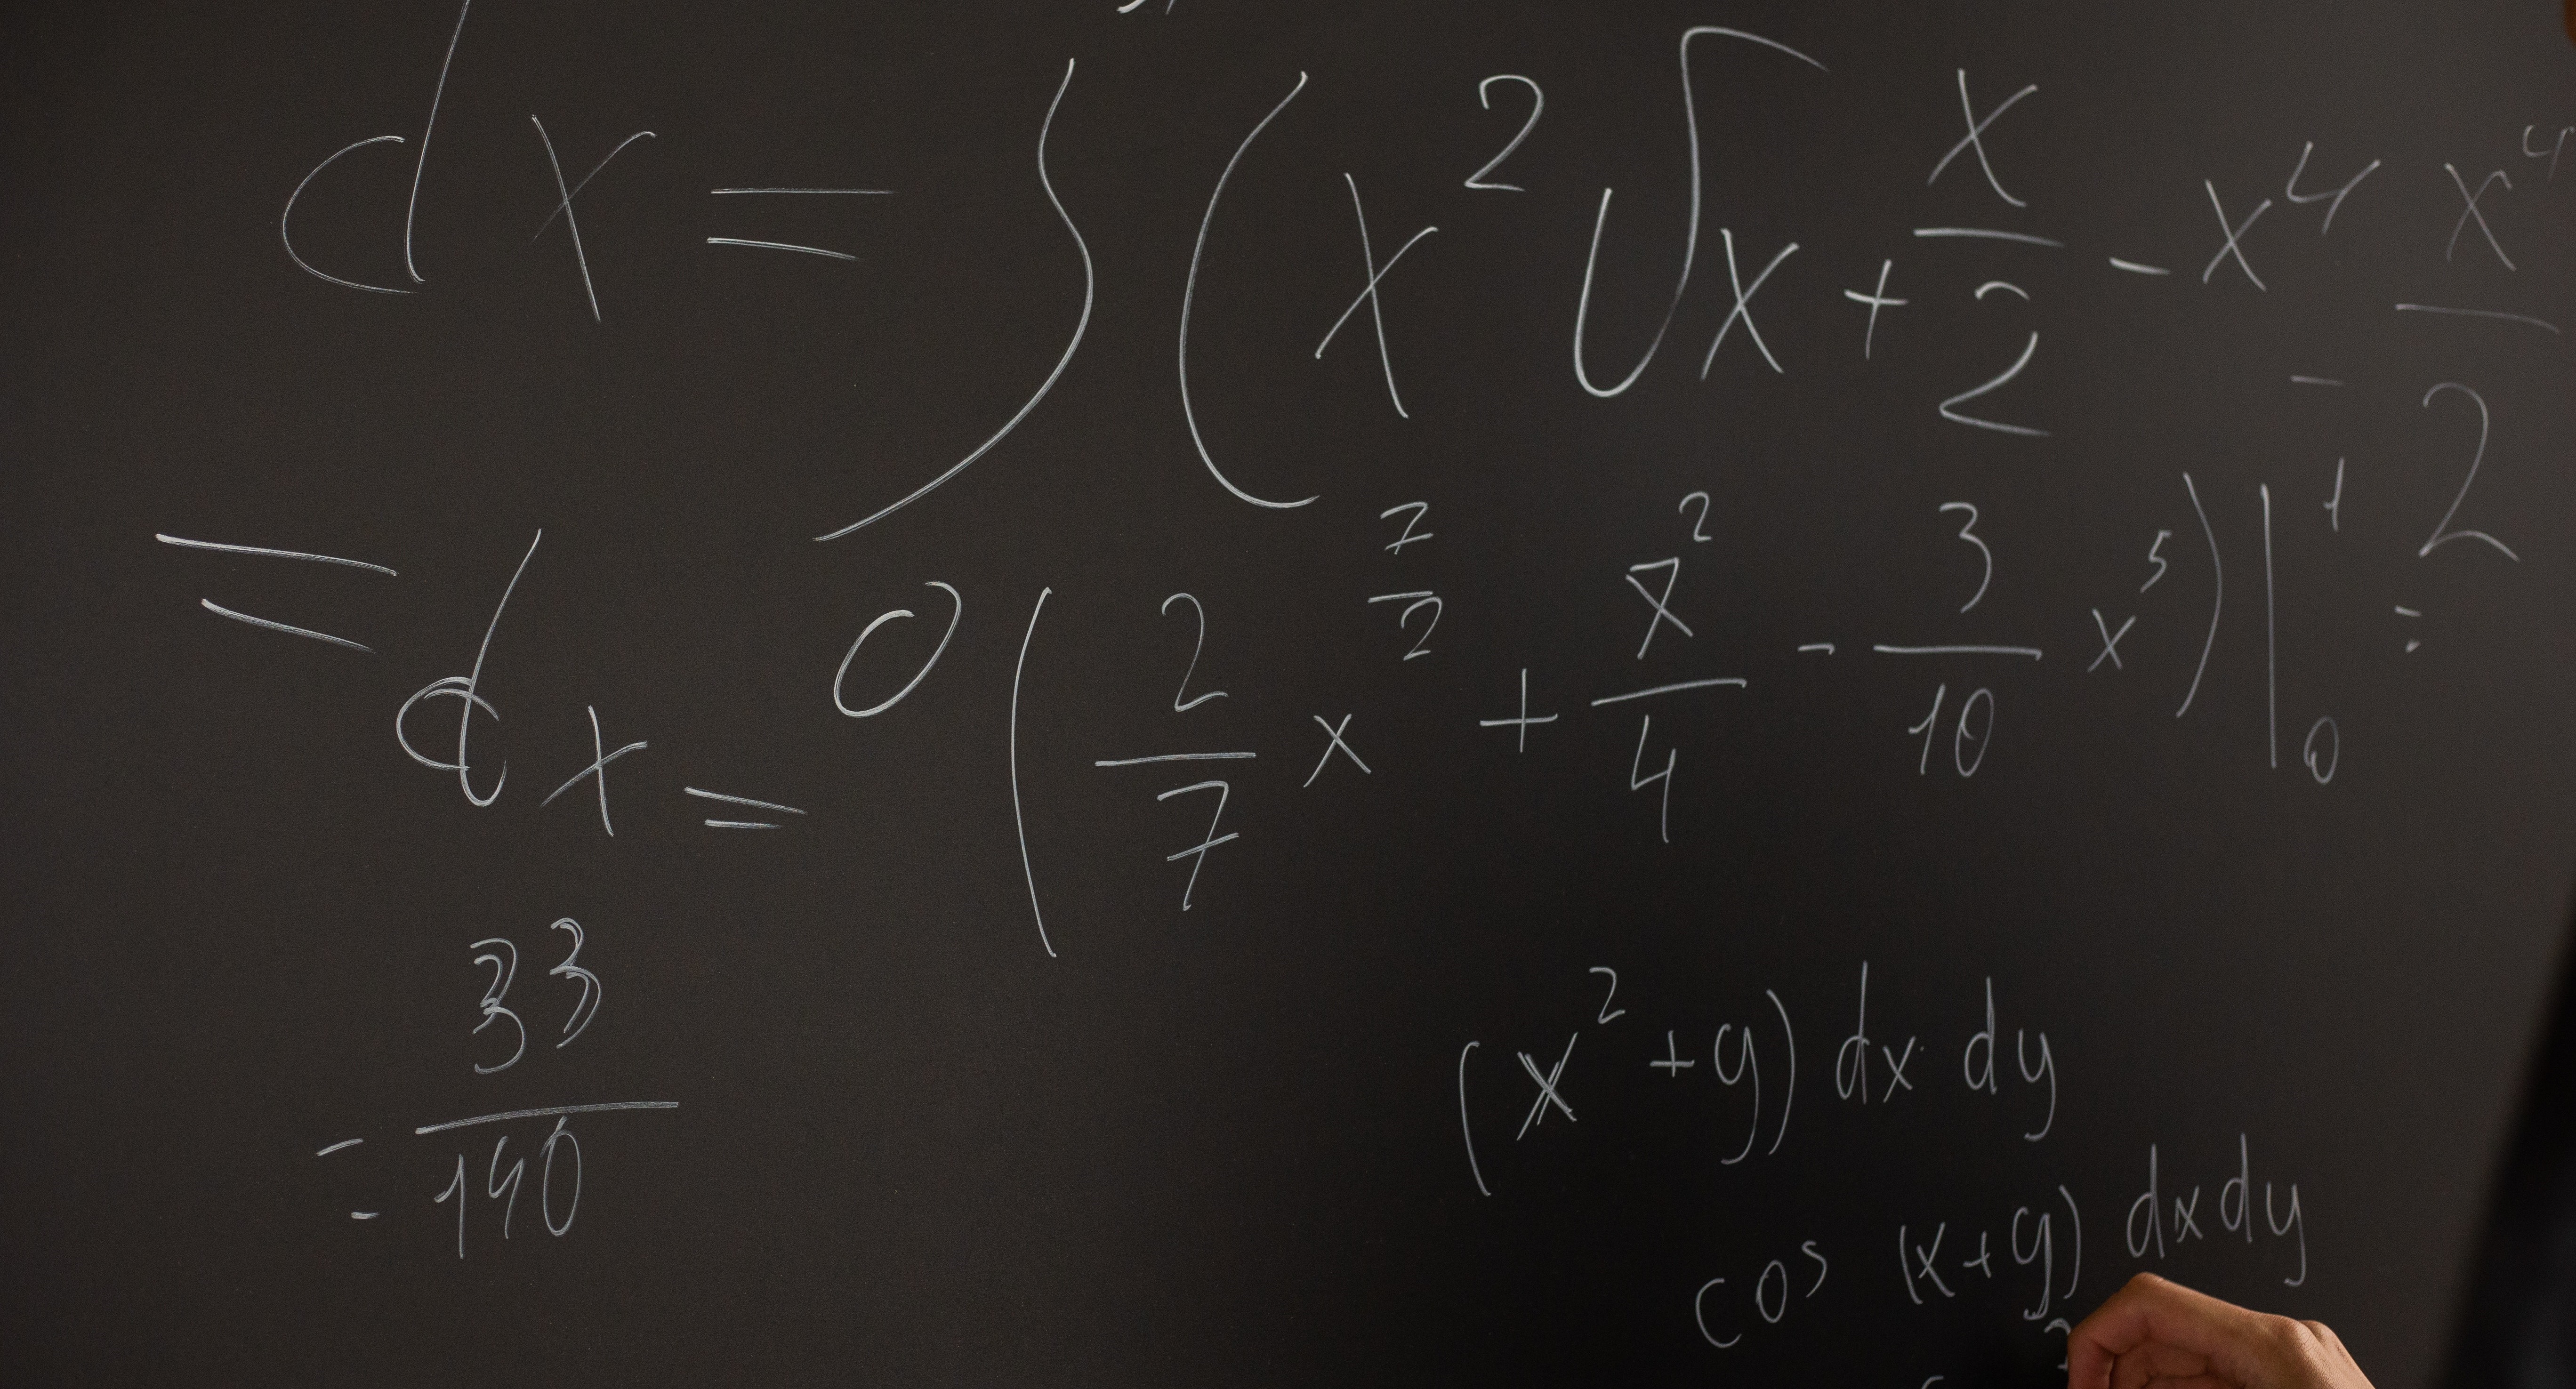 dx = ∫ (x² √x + x/2 - x⁴ - x⁴/2
= dx = 0 (2/7 x^(7/2) + x²/4 - 3/10 x⁵)|₀¹ =
= 33/140
(x² + y) dx dy
cos (x+y) dx dy